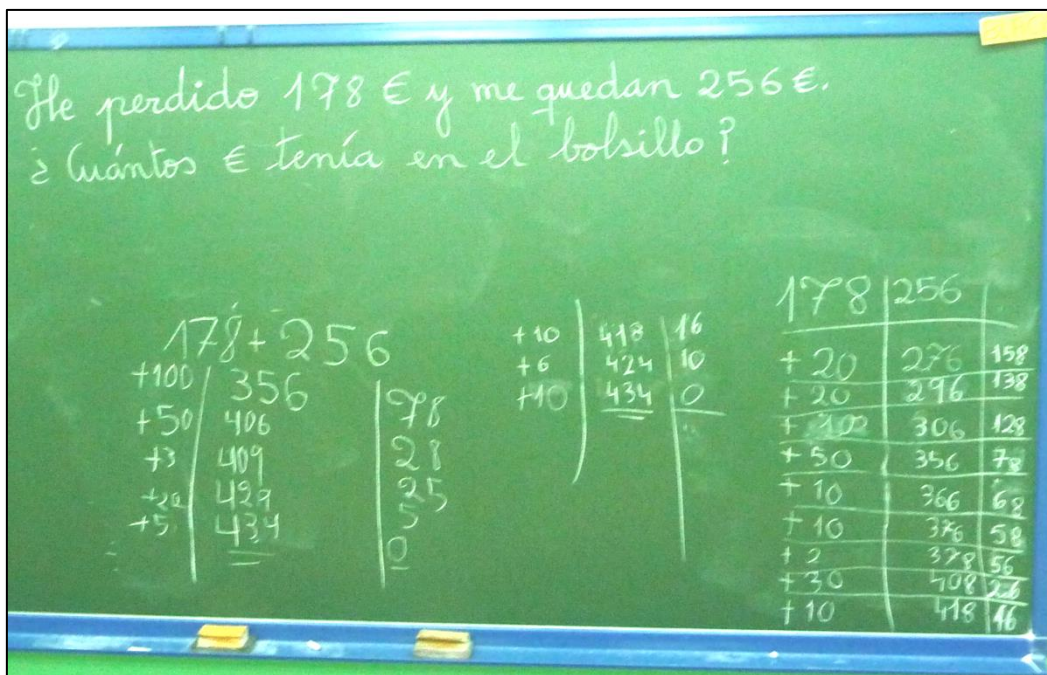 He perdido 178 € y me quedan 256 €.
¿Cuántos € tenía en el bolsillo?
178 + 256
+100 356 78
+50 406 28
+3 409 25
+20 429 5
+5 434 0
+10 418 16
+6 424 10
+10 434 0
178 256
+20 276 158
+20 296 138
+ 306 128
+50 356 78
+10 366 68
+10 376 58
+2 378 56
+30 408 26
+10 418 16